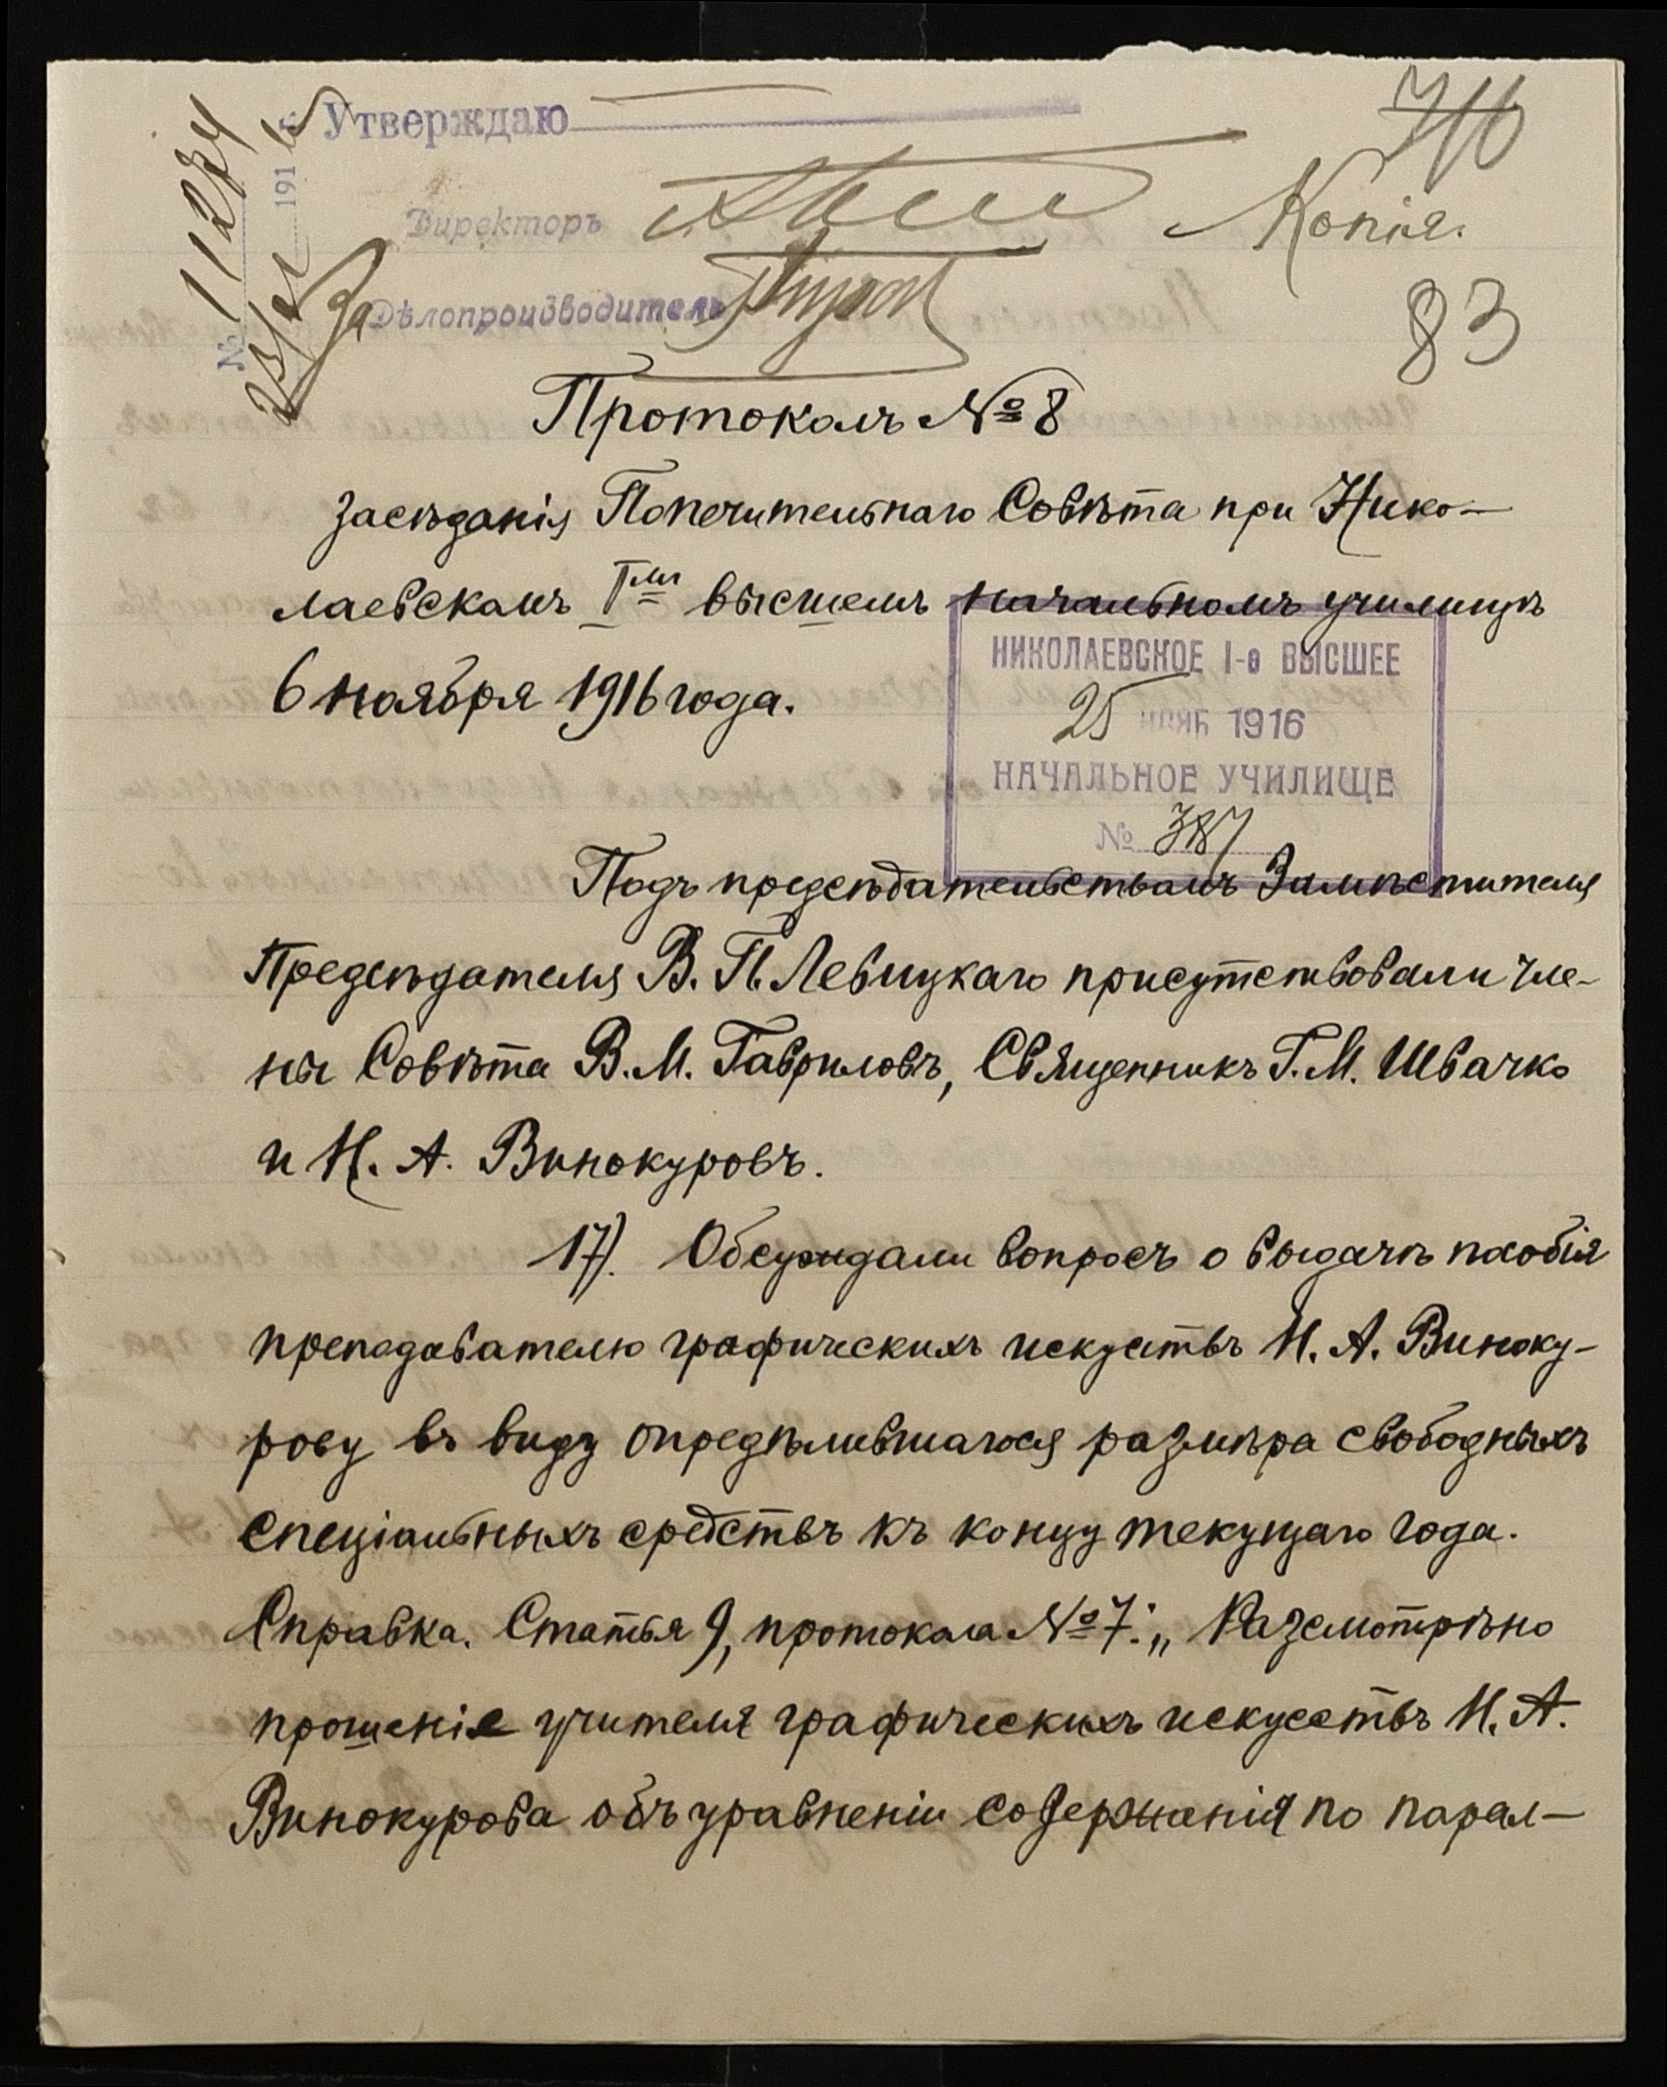 Утверждаю
Директоръ
За Дѣлопроизводитель
№ 11274
191 6 г.
Копія.
83
Протоколъ № 8
засѣданія Попечительнаго Совѣта при Нико-
лаевскомъ Iмъ высшемъ начальномъ училищѣ
6 ноября 1916 года.
НИКОЛАЕВСКОЕ I-е ВЫСШЕЕ
25 НОЯБ 1916
НАЧАЛЬНОЕ УЧИЛИЩЕ
№ 387
Подъ предсѣдательствомъ Замѣстителя
Предсѣдателя В. П. Левицкаго присутствовали чле-
ны Совѣта В. М. Гавриловъ, Священникъ Г. М. Швачко
и Н. А. Винокуровъ.
17). Обсуждали вопросъ о выдачѣ пособія
преподавателю графическихъ искуствъ Н. А. Виноку-
рову въ виду опредѣлившагося размѣра свободныхъ
спеціальныхъ средствъ къ концу текущаго года.
Справка. Статья 9, протокола № 7: „Разсмотрѣно
прошеніе учителя графическихъ искусствъ Н. А.
Винокурова объ уравненіи содержанія по парал-